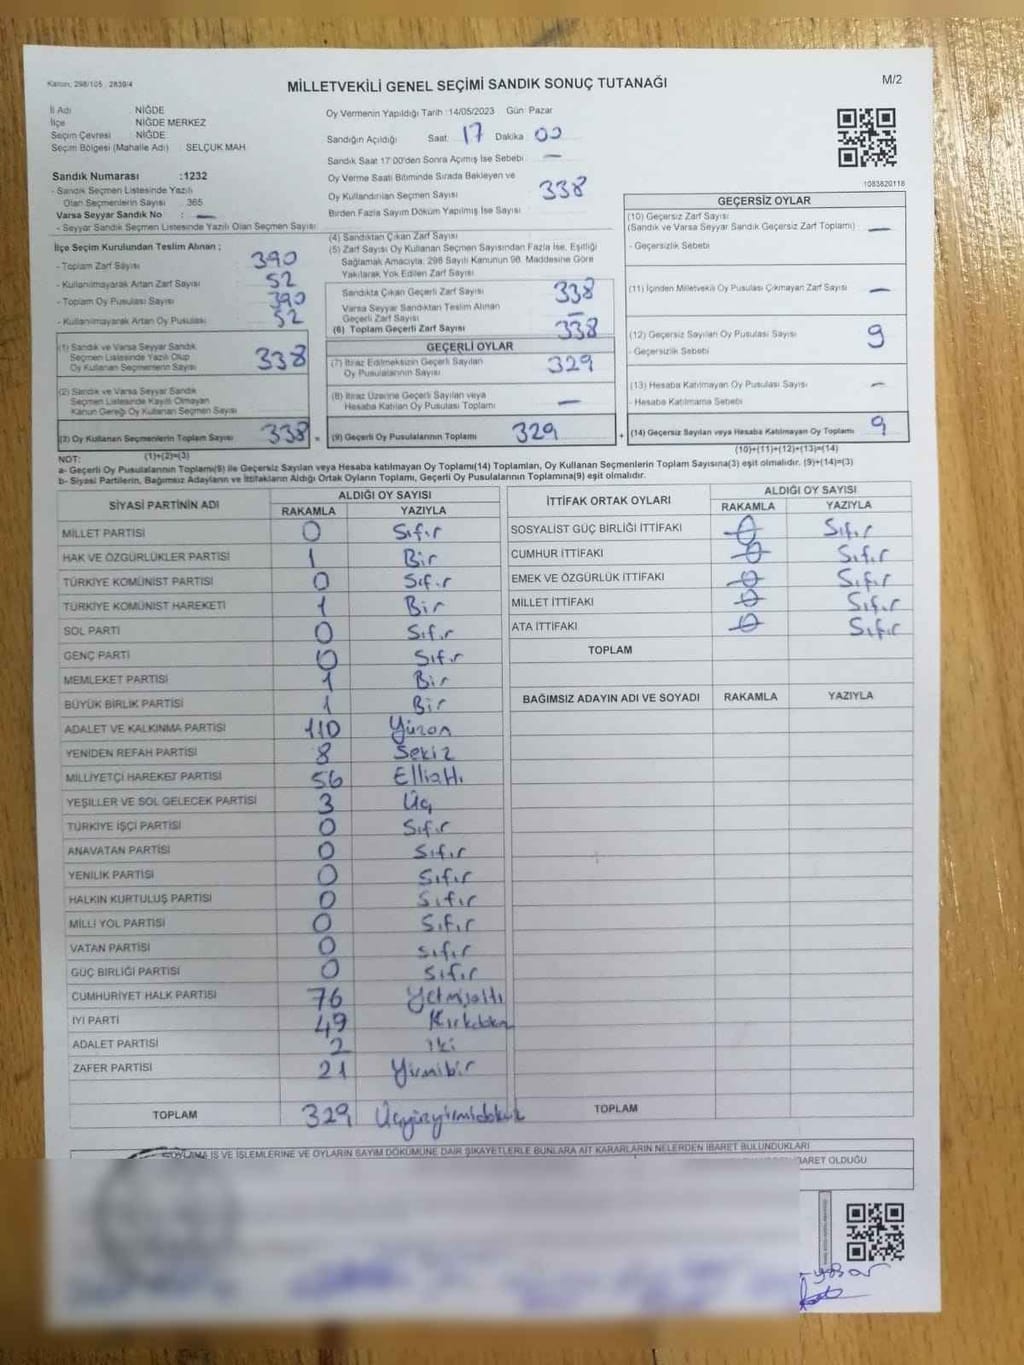 Kanun, 298/105, 2839/4
MİLLETVEKİLİ GENEL SEÇİMİ SANDIK SONUÇ TUTANAĞI
M/2
İl Adı NİĞDE
İlçe NİĞDE MERKEZ
Seçim Çevresi NİĞDE
Seçim Bölgesi (Mahalle Adı) SELÇUK MAH
Sandık Numarası :1232
- Sandık Seçmen Listesinde Yazılı
Olan Seçmenlerin Sayısı 365
Varsa Seyyar Sandık No : —
- Seyyar Sandık Seçmen Listesinde Yazılı Olan Seçmen Sayısı
Oy Vermenin Yapıldığı Tarih :14/05/2023 Gün: Pazar
Sandığın Açıldığı Saat: 17 Dakika 00
Sandık Saat 17:00'den Sonra Açımış İse Sebebi —
Oy Verme Saati Bitiminde Sırada Bekleyen ve
Oy Kullandırılan Seçmen Sayısı 338
Birden Fazla Sayım Döküm Yapılmış İse Sayısı
1083820118
İlçe Seçim Kurulundan Teslim Alınan ;
- Toplam Zarf Sayısı 390
- Kullanılmayarak Artan Zarf Sayısı 52
- Toplam Oy Pusulası Sayısı 390
- Kullanılmayarak Artan Oy Pusulası 52
(1) Sandık ve Varsa Seyyar Sandık
Seçmen Listesinde Yazılı Olup
Oy Kullanan Seçmenlerin Sayısı 338
(2) Sandık ve Varsa Seyyar Sandık
Seçmen Listesinde Kayıtlı Olmayan
Kanun Gereği Oy Kullanan Seçmen Sayısı
(3) Oy Kullanan Seçmenlerin Toplam Sayısı 338 =
(1)+(2)=(3)
(4) Sandıktan Çıkan Zarf Sayısı
(5) Zarf Sayısı Oy Kullanan Seçmen Sayısından Fazla İse, Eşitliği
Sağlamak Amacıyla; 298 Sayılı Kanunun 98. Maddesine Göre
Yakılarak Yok Edilen Zarf Sayısı
Sandıkta Çıkan Geçerli Zarf Sayısı 338
Varsa Seyyar Sandıktan Teslim Alınan
Geçerli Zarf Sayısı —
(6) Toplam Geçerli Zarf Sayısı 338
GEÇERLİ OYLAR
(7) İtiraz Edilmeksizin Geçerli Sayılan
Oy Pusulalarının Sayısı 329
(8) İtiraz Üzerine Geçerli Sayılan veya
Hesaba Katılan Oy Pusulaları Toplamı —
(9) Geçerli Oy Pusulalarının Toplamı 329 +
GEÇERSİZ OYLAR
(10) Geçersiz Zarf Sayısı
(Sandık ve Varsa Seyyar Sandık Geçersiz Zarf Toplamı) —
- Geçersizlik Sebebi
(11) İçinden Milletvekili Oy Pusulası Çıkmayan Zarf Sayısı —
(12) Geçersiz Sayılan Oy Pusulası Sayısı 9
- Geçersizlik Sebebi
(13) Hesaba Katılmayan Oy Pusulası Sayısı —
- Hesaba Katılmama Sebebi
(14) Geçersiz Sayılan veya Hesaba Katılmayan Oy Toplamı 9
(10)+(11)+(12)+(13)=(14)
NOT:
a- Geçerli Oy Pusulalarının Toplamı(9) ile Geçersiz Sayılan veya Hesaba katılmayan Oy Toplamı(14) Toplamları, Oy Kullanan Seçmenlerin Toplam Sayısına(3) eşit olmalıdır. (9)+(14)=(3)
b- Siyasi Partilerin, Bağımsız Adayların ve İttifakların Aldığı Ortak Oyların Toplamı, Geçerli Oy Pusulalarının Toplamına(9) eşit olmalıdır.
SİYASİ PARTİNİN ADI ALDIĞI OY SAYISI
RAKAMLA YAZIYLA
MİLLET PARTİSİ 0 Sıfır
HAK VE ÖZGÜRLÜKLER PARTİSİ 1 Bir
TÜRKİYE KOMÜNİST PARTİSİ 0 Sıfır
TÜRKİYE KOMÜNİST HAREKETİ 1 Bir
SOL PARTİ 0 Sıfır
GENÇ PARTİ 0 Sıfır
MEMLEKET PARTİSİ 1 Bir
BÜYÜK BİRLİK PARTİSİ 1 Bir
ADALET VE KALKINMA PARTİSİ 110 Yüzon
YENİDEN REFAH PARTİSİ 8 Sekiz
MİLLİYETÇİ HAREKET PARTİSİ 56 Elliatlı
YEŞİLLER VE SOL GELECEK PARTİSİ 3 Üç
TÜRKİYE İŞÇİ PARTİSİ 0 Sıfır
ANAVATAN PARTİSİ 0 Sıfır
YENİLİK PARTİSİ 0 Sıfır
HALKIN KURTULUŞ PARTİSİ 0 Sıfır
MİLLİ YOL PARTİSİ 0 Sıfır
VATAN PARTİSİ 0 Sıfır
GÜÇ BİRLİĞİ PARTİSİ 0 Sıfır
CUMHURİYET HALK PARTİSİ 76 Yetmişaltı
İYİ PARTİ 49 Kırkdokuz
ADALET PARTİSİ 2 İki
ZAFER PARTİSİ 21 Yirmibir
TOPLAM 329 Üçyüzyirmidokuz
İTTİFAK ORTAK OYLARI ALDIĞI OY SAYISI
RAKAMLA YAZIYLA
SOSYALİST GÜÇ BİRLİĞİ İTTİFAKI 0 Sıfır
CUMHUR İTTİFAKI 0 Sıfır
EMEK VE ÖZGÜRLÜK İTTİFAKI 0 Sıfır
MİLLET İTTİFAKI 0 Sıfır
ATA İTTİFAKI 0 Sıfır
TOPLAM
BAĞIMSIZ ADAYIN ADI VE SOYADI RAKAMLA YAZIYLA
TOPLAM
OYLAMA İŞ VE İŞLEMLERİNE VE OYLARIN SAYIM DÖKÜMÜNE DAİR ŞİKAYETLERLE BUNLARA AİT KARARLARIN NELERDEN İBARET BULUNDUKLARI
İBARET OLDUĞU